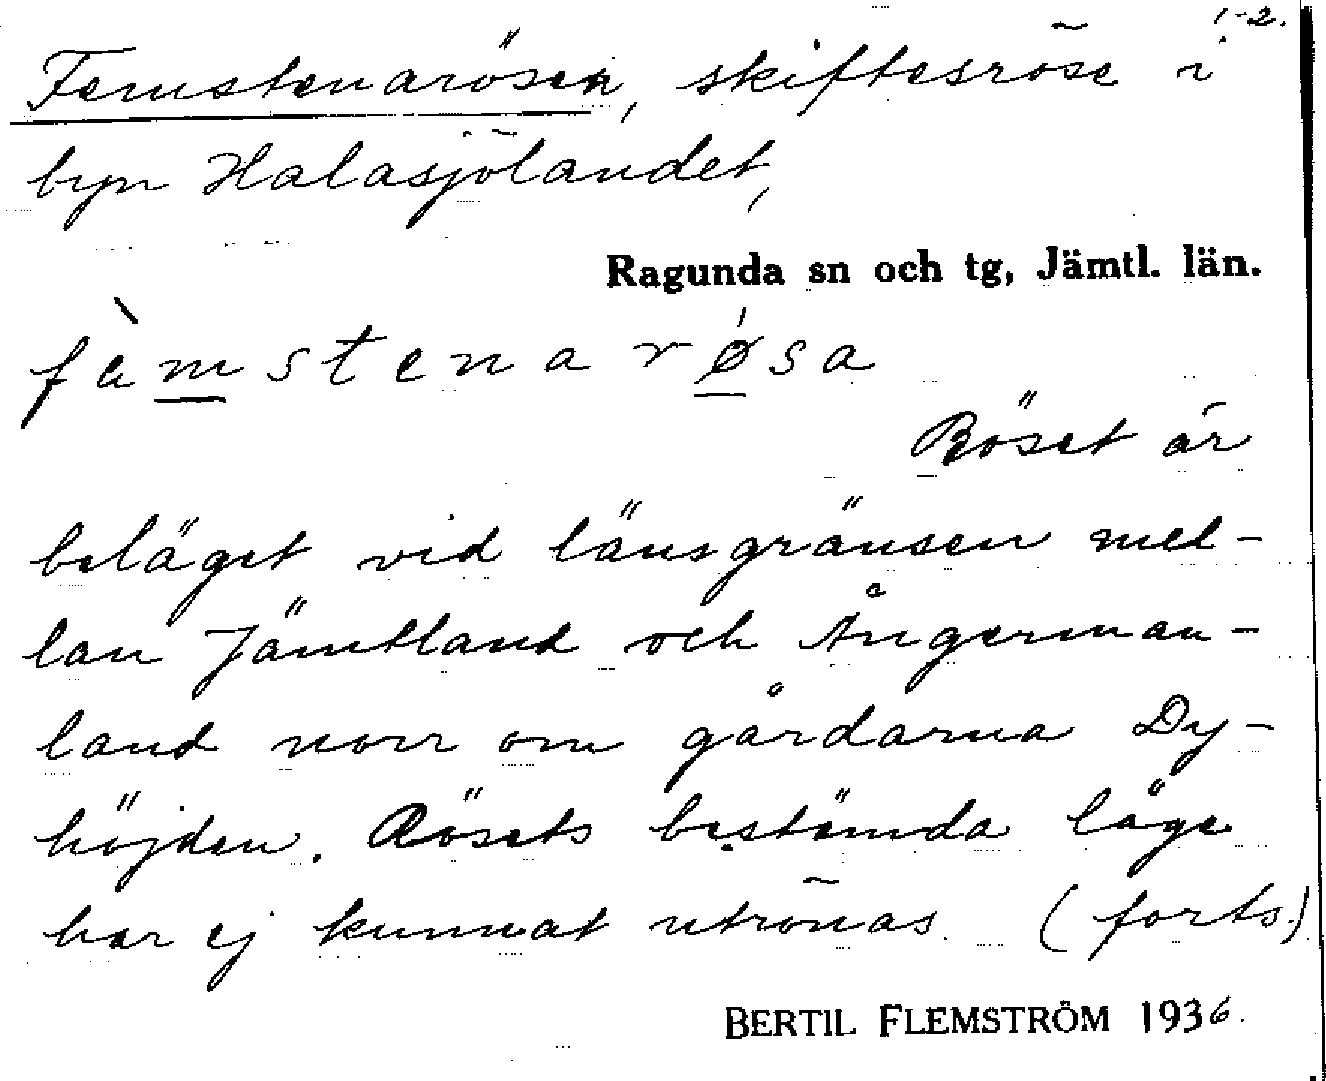 1-2.
Femstenarösen, skiftesröse i
byn Halasjölandet,
Ragunda sn och tg, Jämtl. län.
fàmstenarǿsa
Röset är
beläget vid länsgränsen mel-
lan Jämtland och Ångerman-
land norr om gårdarna Dy-
höjden. Rösets bestämda läge
har ej kunnat utrönas. (forts.)
BERTIL FLEMSTRÖM 1936.